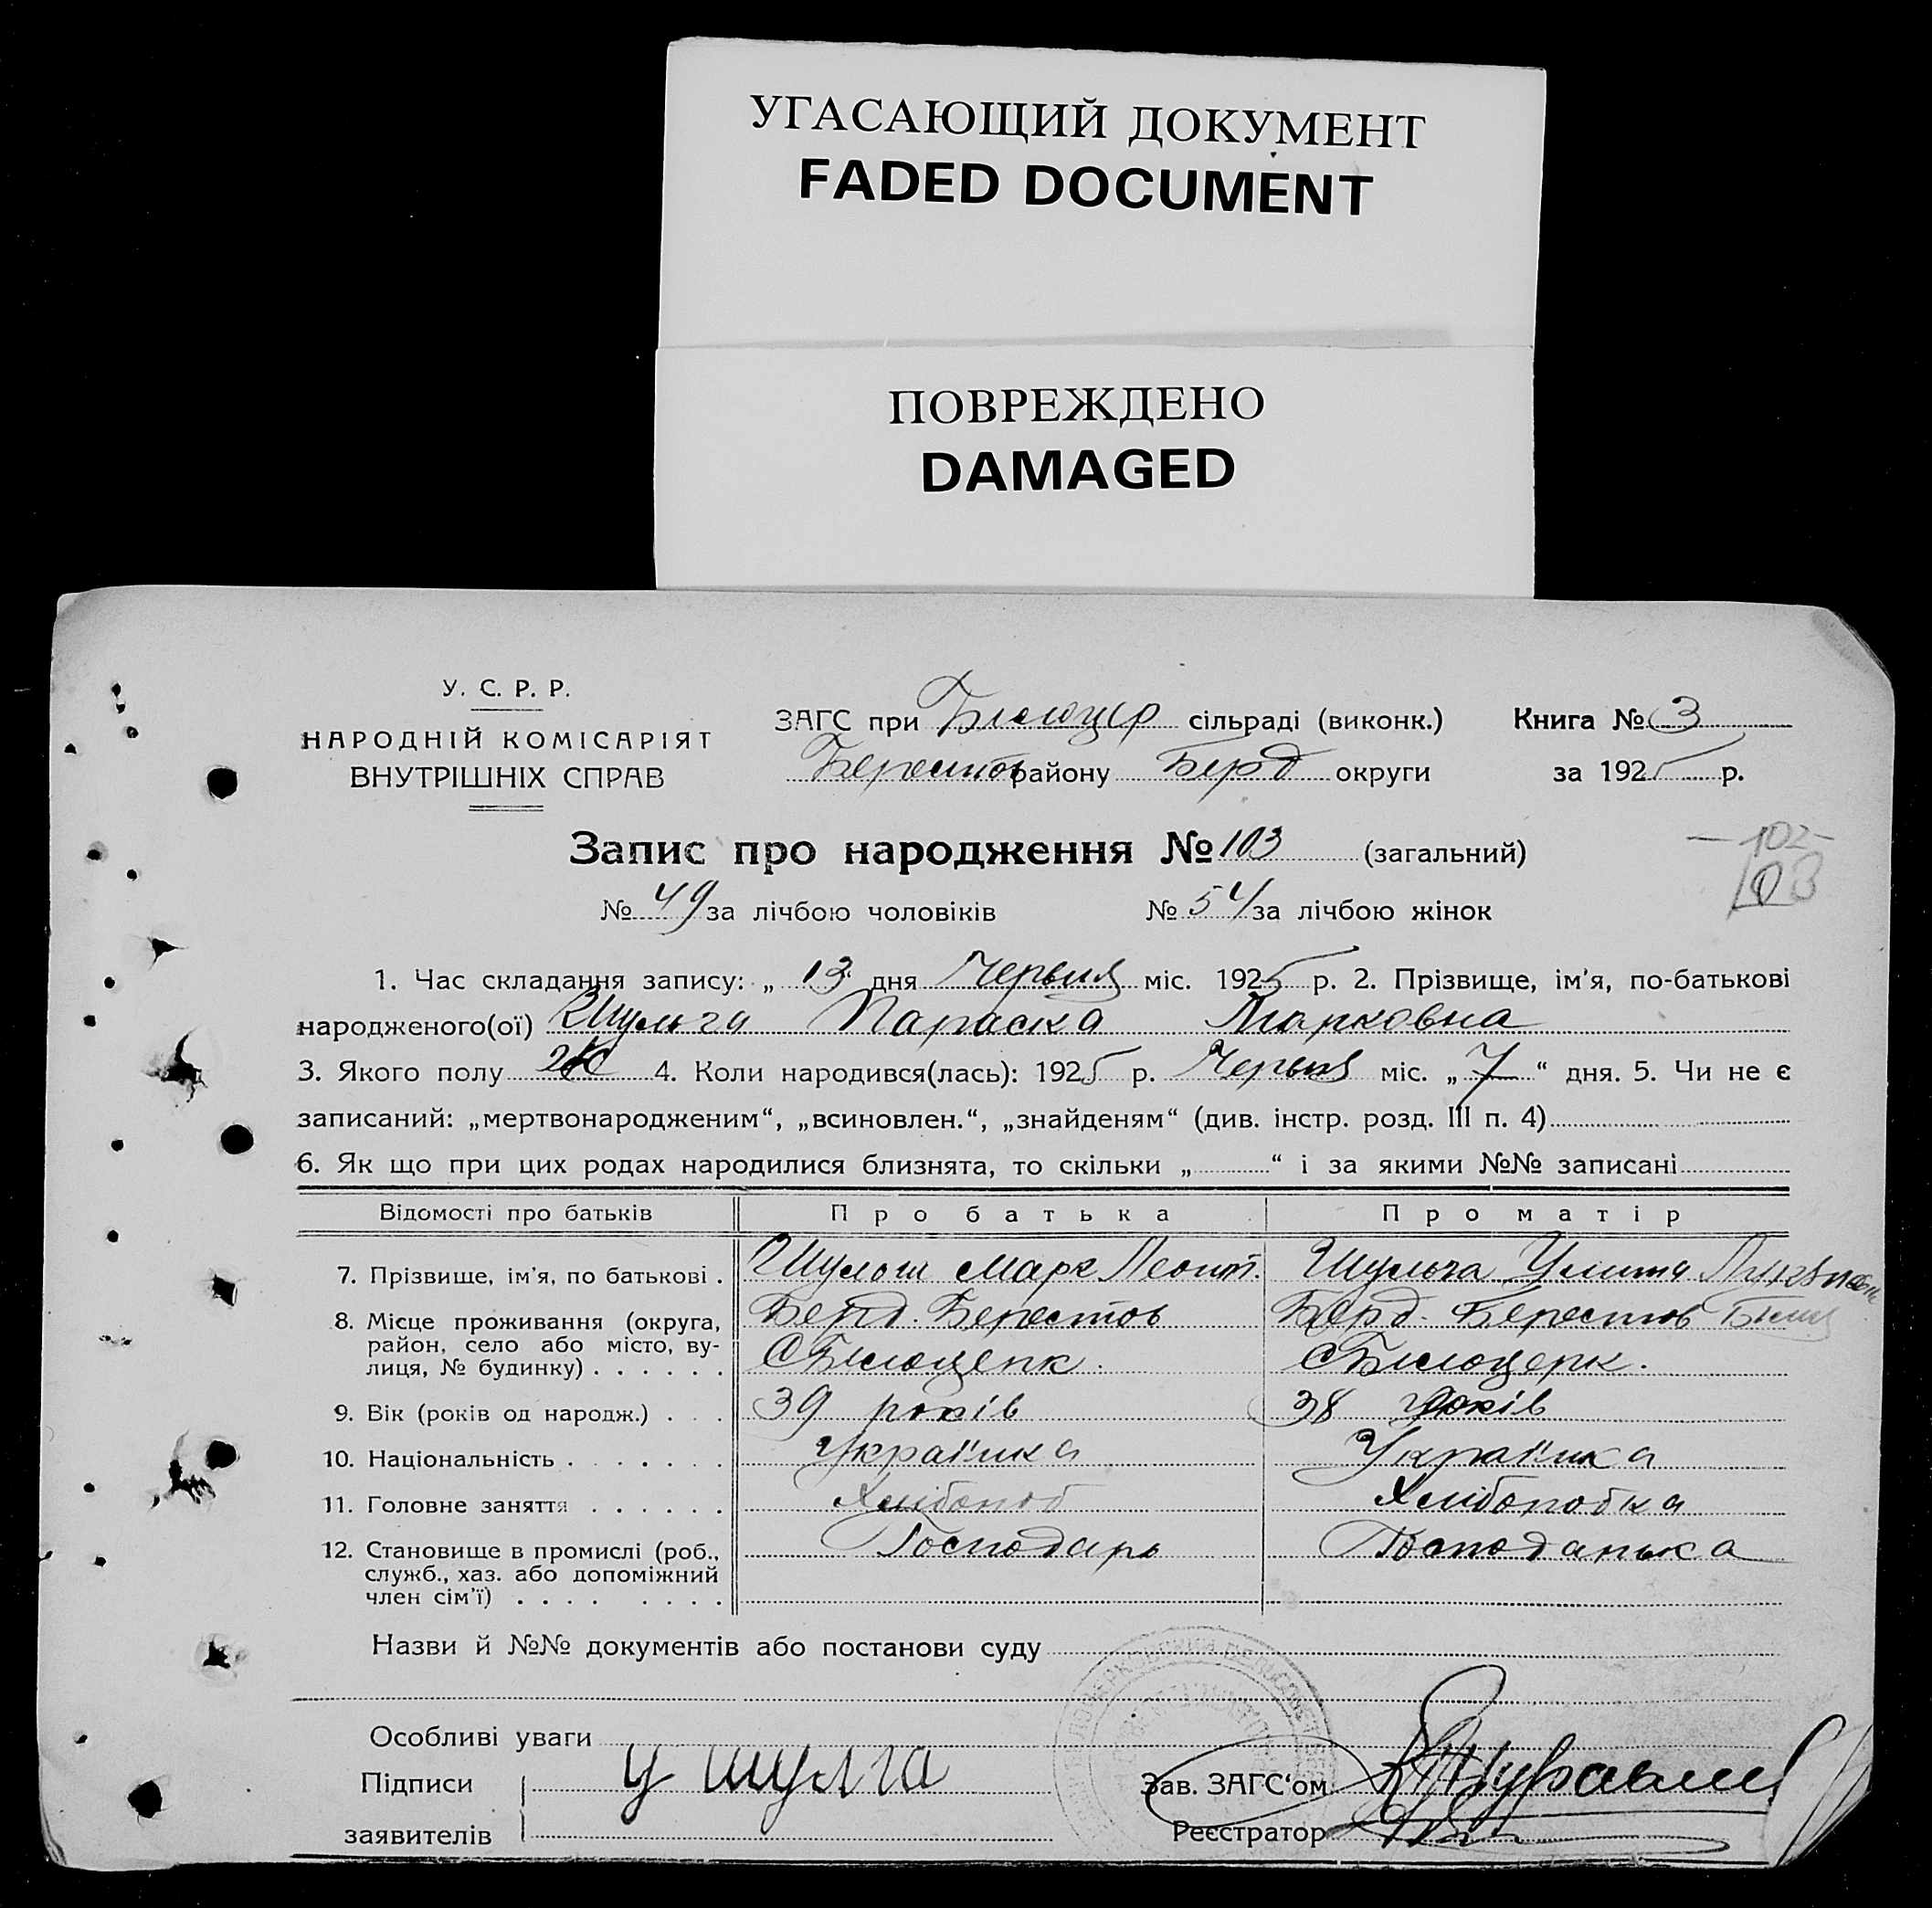 УГАСАЮЩИЙ ДОКУМЕНТ
FADED DOCUMENT
ПОВРЕЖДЕНО
DAMAGED
У. С. Р. Р.
НАРОДНІЙ КОМІСАРІЯТ
ВНУТРІШНІХ СПРАВ
ЗАГС при Білоцер сільраді (виконк.) Книга № 3
Берестов району Берд округи за 1925 р.
Запис про народження № 103 (загальний)
— 102 —
103
№ 49 за лічбою чоловіків № 54 за лічбою жінок
1. Час складання запису: „ 13 дня Червня міс. 1925 р. 2. Прізвище, ім'я, по-батькові
народженого(ої) Шульга Параска Марковна
3. Якого полу Ж 4. Коли народився(лась): 1925 р. Червня міс. „ 7 “ дня. 5. Чи не є
записаний: „мертвонародженим“, „всиновлен.“, „знайденям“ (див. інстр. розд. III п. 4)
6. Як що при цих родах народилися близнята, то скільки „ “ і за якими №№ записані
Відомості про батьків Про батька Про матір
7. Прізвище, ім'я, по батькові . Марк Леонт. Шульга Улита
8. Місце проживання (округа, Берд. Берестов Берд. Берестов
район, село або місто, ву-
лиця, № будинку) . . . . . . С Білоцерк. С Білоцерк.
9. Вік (років од народж.) . . . 39 років 38 років
10. Національність . . . . . . . Українка Українка
11. Головне заняття . . . . . . Хлібороб Хліборобка
12. Становище в промислі (роб., Господарь Господарька
служб., хаз. або допоміжний
член сім'ї) . . . . . . . .
Назви й №№ документів або постанови суду
Особливі уваги
Підписи У Шулга Зав. ЗАГС‘ом
заявителів Реєстратор